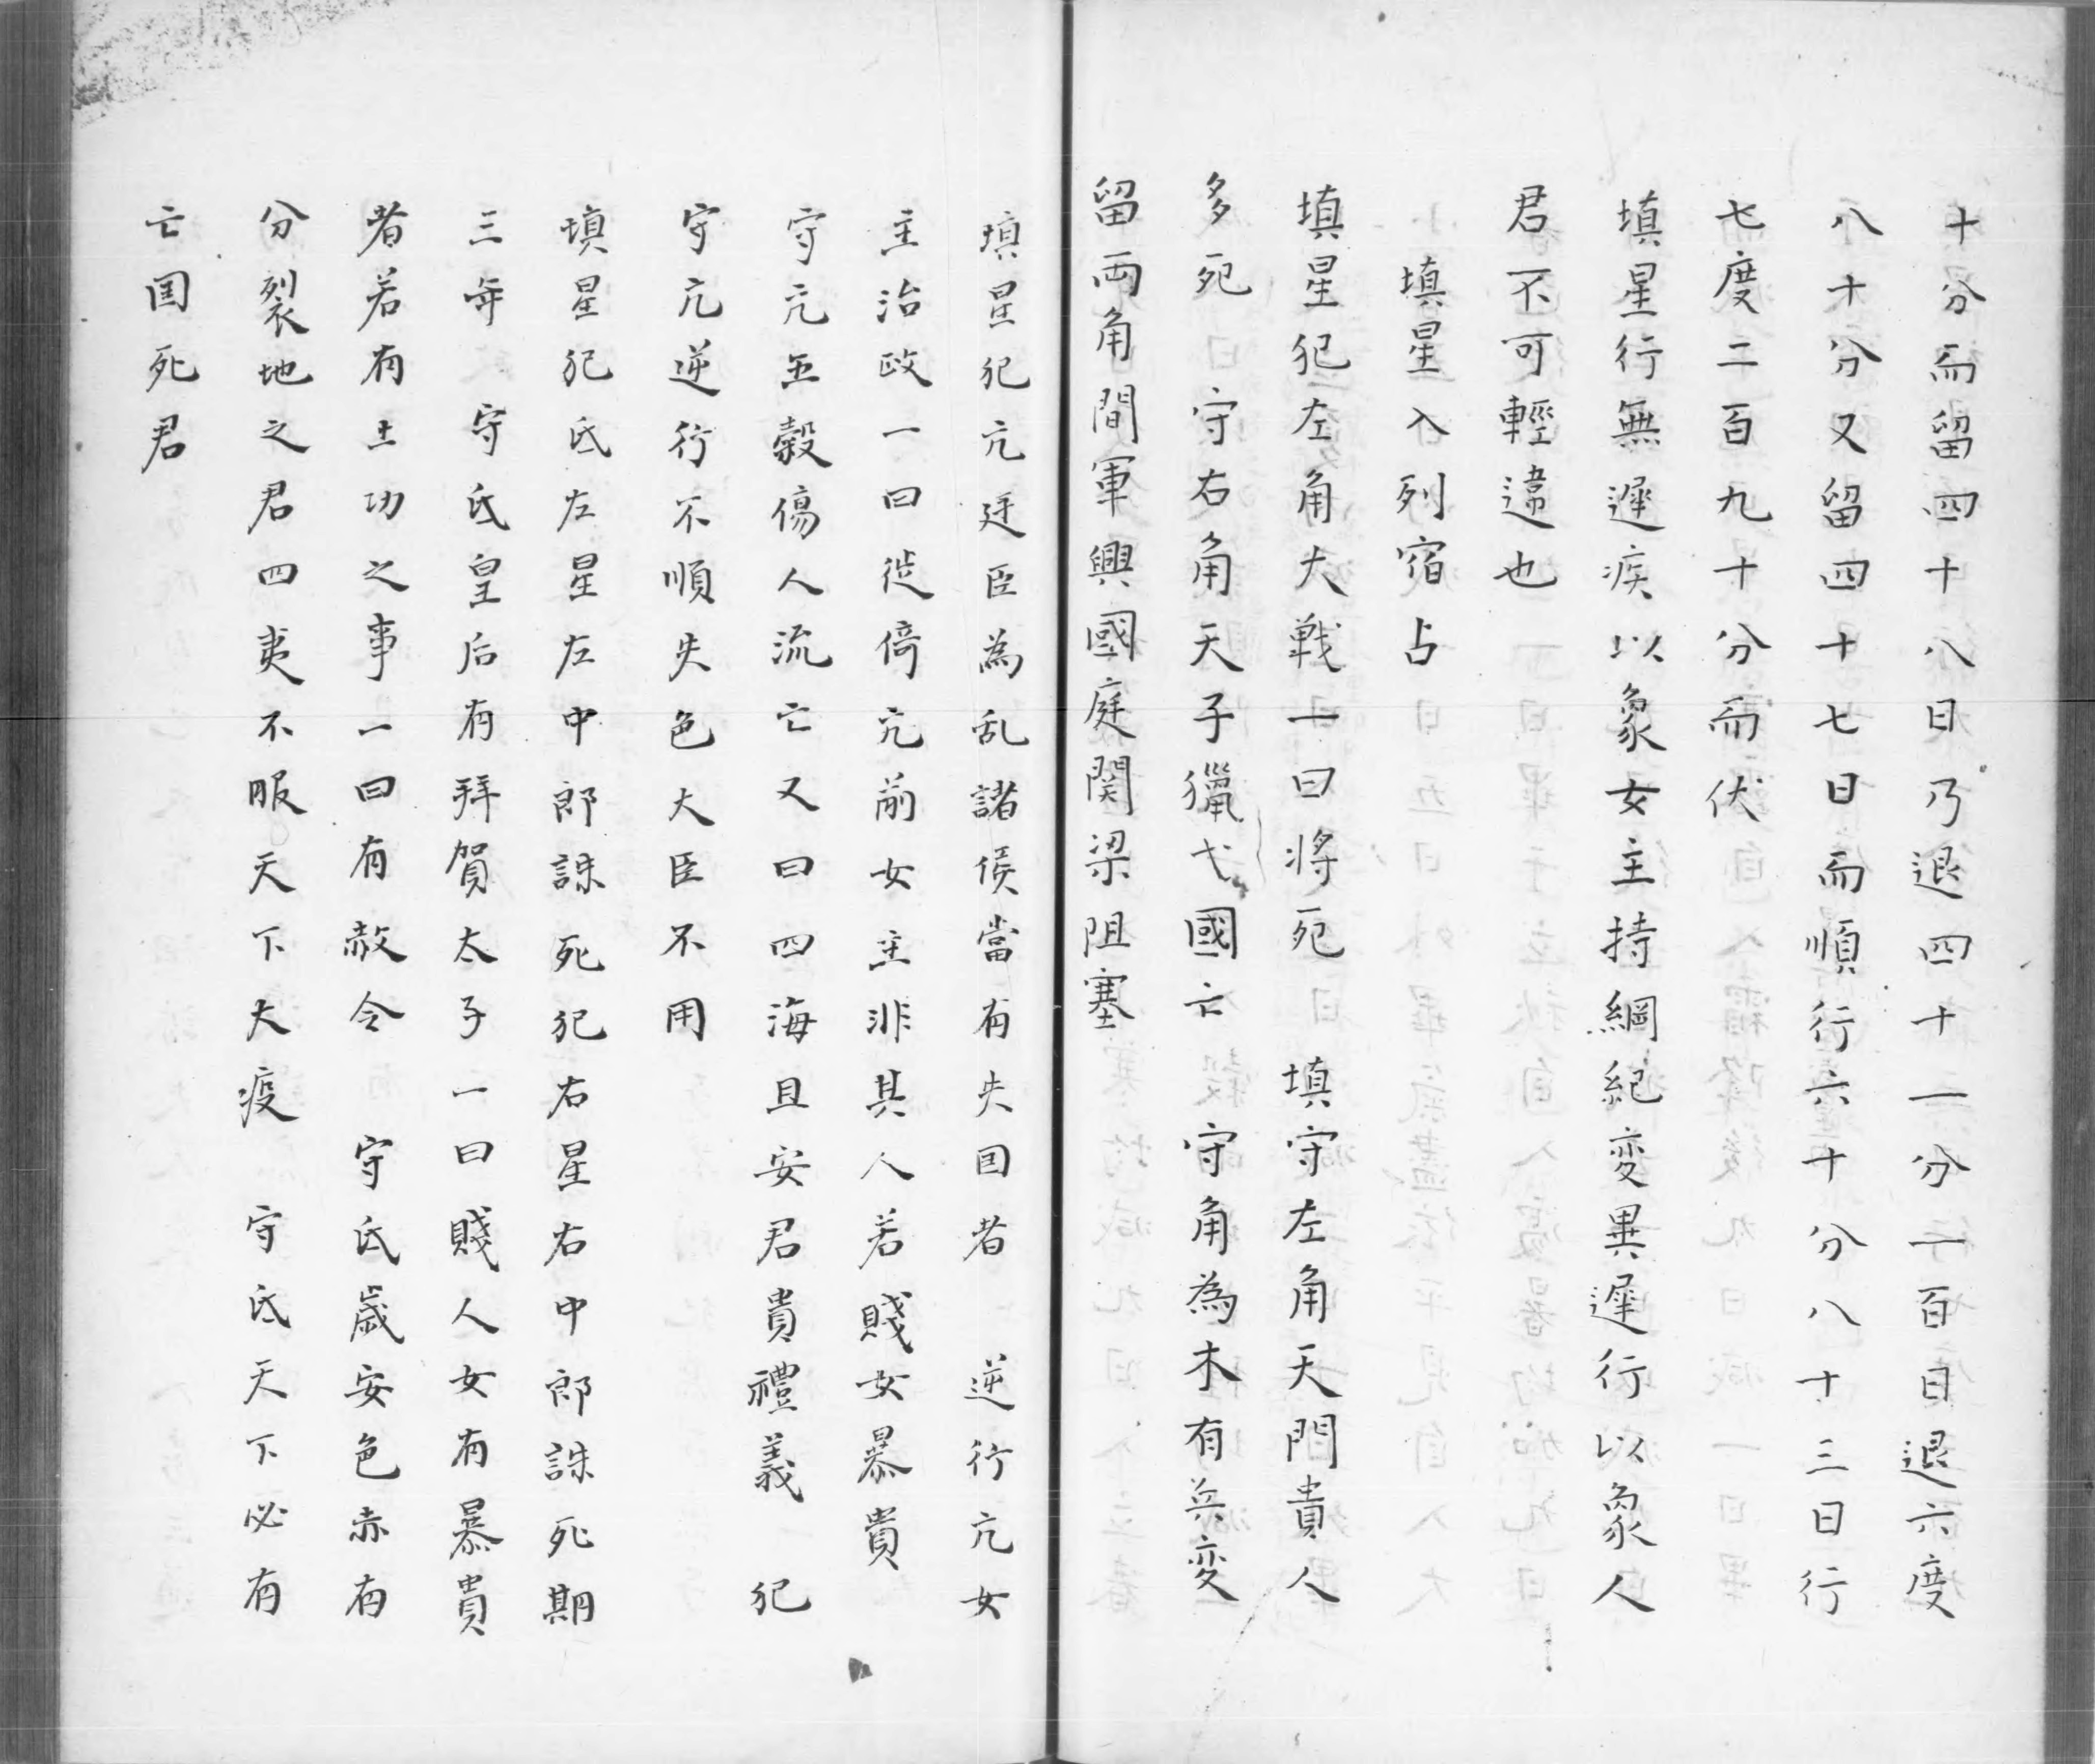 十分而留四十八日乃退四十一分一百日退六度
八十分又留四十七日而順行六十分八十三日行
七度二百九十分而伏
填星行無遅疾以象女主持綱紀変異遅行以象人
君不可輕違也
填星入列宿占
填星犯左角大戦一曰将死　填守左角天門貴人
多死　守右角天子獵弋國亡　守角為木有兵変
留両角間軍興國庭関梁阻塞
填星犯亢廷臣為乱諸侯當有失囯者　逆行亢女
主治政一曰徙倚亢前女主非其人若賤女暴貴
守亢五穀傷人流亡又曰四海且安君貴禮義　犯
守亢逆行不順失色大臣不用
填星犯氐左星左中郎誅死犯右星右中郎誅死期
三年　守氐皇后有拜賀太子一曰賤人女有暴貴
者若有土功之事一曰有赦令　守氐歳安色赤有
分裂地之君四夷不服天下大疫　守氐天下必有
亡囯死君